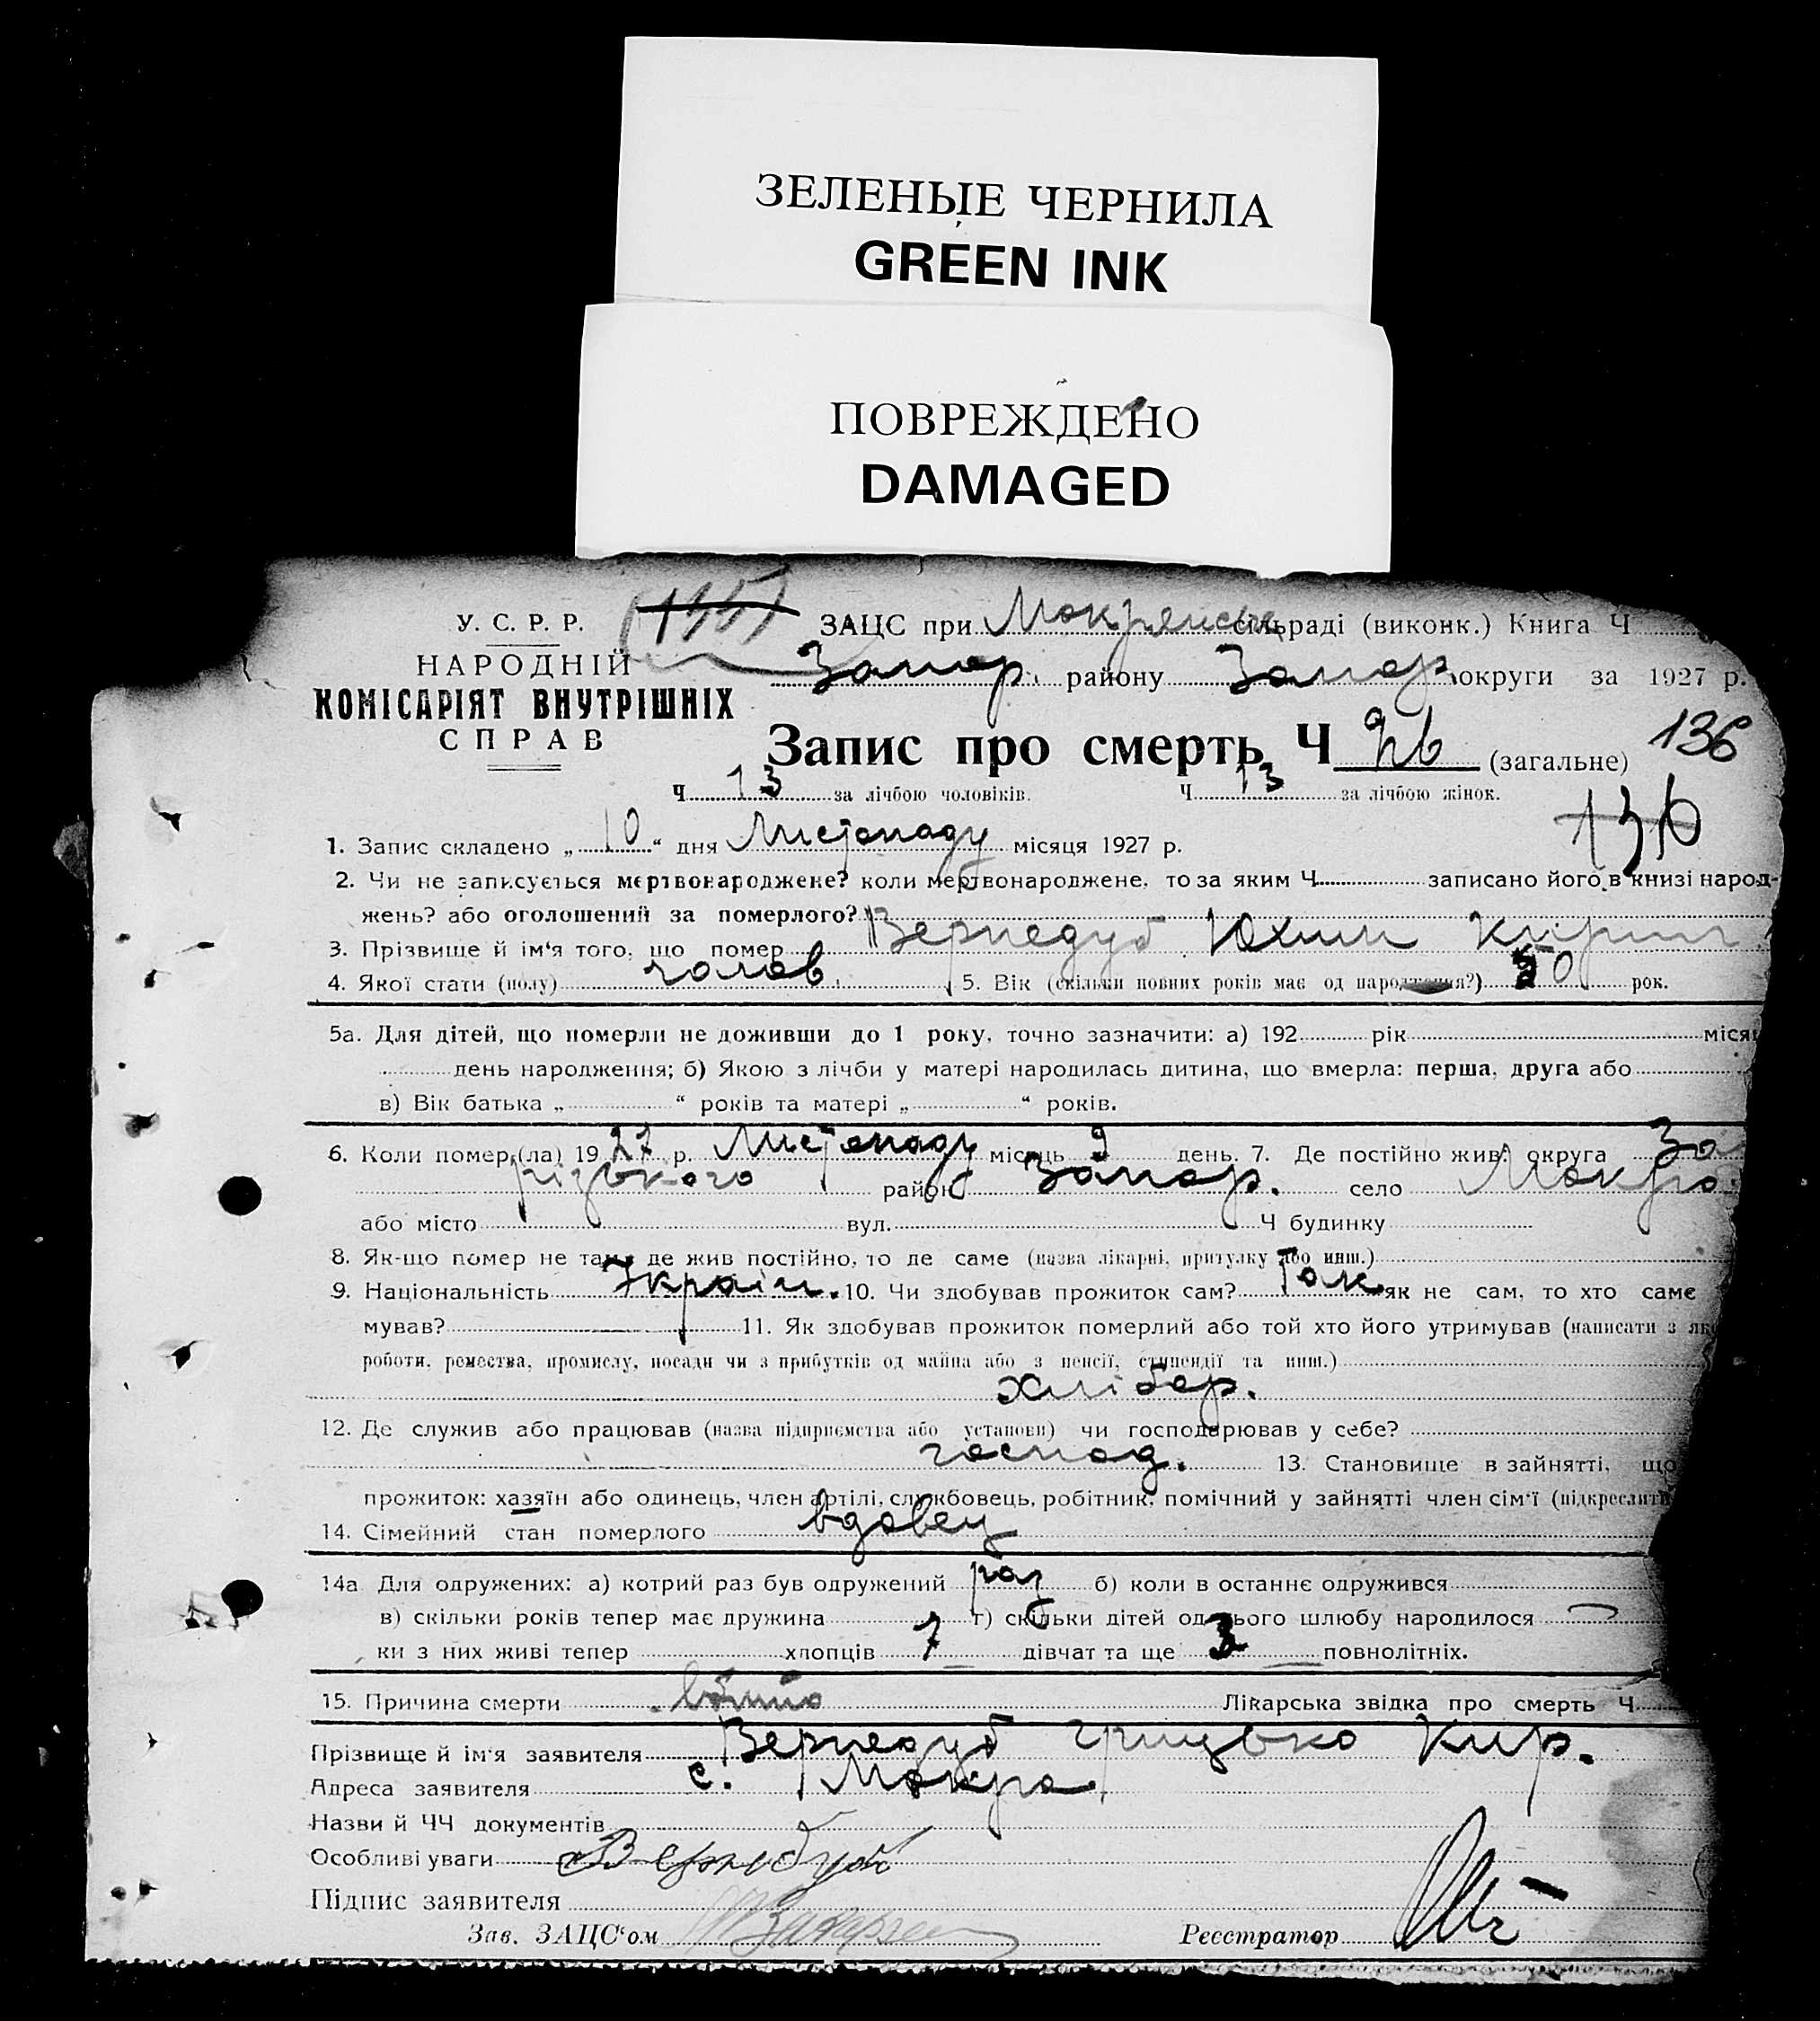 ЗЕЛЕНЫЕ ЧЕРНИЛА
GREEN INK
ПОВРЕЖДЕНО
DAMAGED
У. С. Р. Р.
НАРОДНІЙ
КОМІСАРІЯТ ВНУТРІШНІХ
СПРАВ
ЗАЦС при Мокрянськ сільраді (виконк.) Книга Ч
Запор. району Запор. округи за 1927 р.
Запис про смерть Ч 26 (загальне) 136
Ч 13 за лічбою чоловіків. Ч 13 за лічбою жінок.
136
1. Запис складено „ 10 “ дня Листопаду місяця 1927 р.
2. Чи не записується мертвонароджене? коли мертвонароджене, то за яким Ч записано його в книзі народ-
жень? або оголошений за померлого?
3. Прізвище й ім'я того, що помер Вернедуб Юхим Кирил
4. Якої стати (полу) чолов. 5. Вік (скільки повних років має од народження?) 50 рок.
5а. Для дітей, що померли не доживши до 1 року, точно зазначити: а) 192 рік місяц
день народження; б) Якою з лічби у матері народилась дитина, що вмерла: перша, друга або
в) Вік батька „ “ років та матері „ “ років.
6. Коли помер (ла) 19 27 р. Листопаду місяць 9 день. 7. Де постійно жив: округа За
різького район Запор. село Мокра
або місто вул. Ч будинку
8. Як-що помер не там, де жив постійно, то де саме (назва лікарні, притулку або инш.)
9. Національність Україн. 10. Чи здобував прожиток сам? Так як не сам, то хто саме
мував? 11. Як здобував прожиток померлий або той хто його утримував (написати з як
роботи, ремества, промислу, посади чи з прибутків од майна або з пенсії, стипендії та инш.)
хлібор.
12. Де служив або працював (назва підприємства або установи) чи господарював у себе?
господ. 13. Становище в зайнятті, що
прожиток: хазяїн або одинець, член артілі, службовець, робітник, помічний у зайнятті член сім'ї (підкреслити
14. Сімейний стан померлого вдовец
14а Для одружених: а) котрий раз був одружений раз б) коли в останнє одружився
в) скільки років тепер має дружина г) скільки дітей од цього шлюбу народилося
ки з них живі тепер хлопців 7 дівчат та ще 3 повнолітніх.
15. Причина смерти Лікарська звідка про смерть Ч
Прізвище й ім'я заявителя Вернедуб Грицько Кир.
Адреса заявителя с. Мокра
Назви й ЧЧ документів
Особливі уваги Вернедуб
Підпис заявителя
Зав. ЗАЦС'ом
Реєстратор